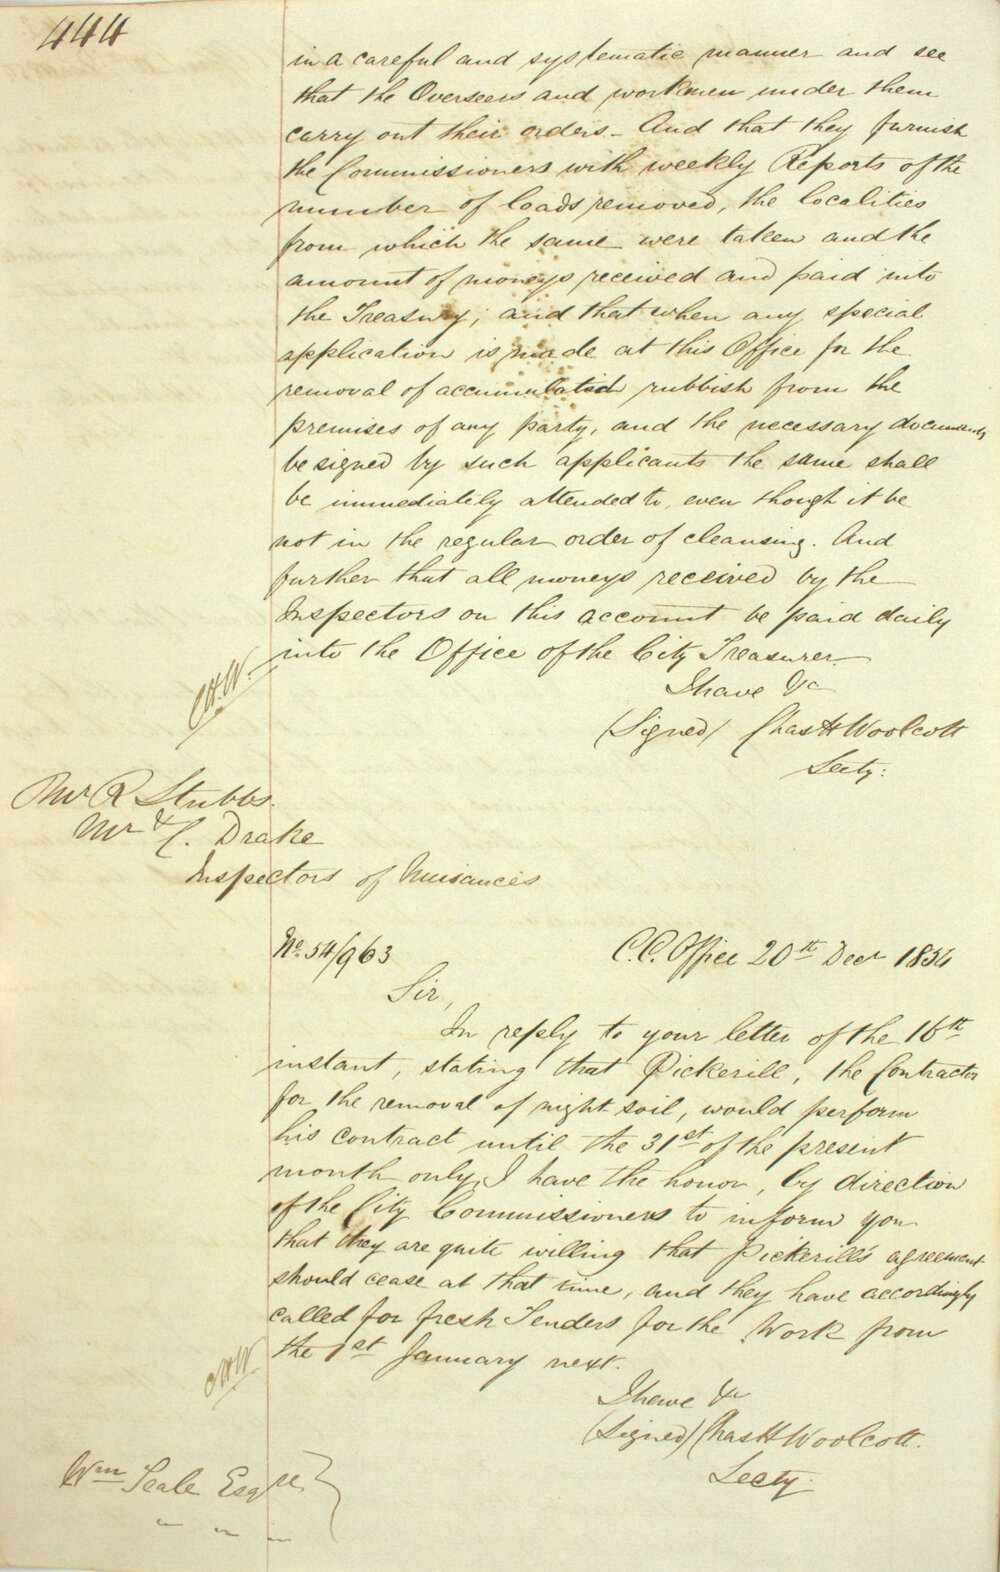 444
in a careful and systematic manner and see
that the Overseers and workmen under them
carry out their orders - And that they furnish
the Commissioners with weekly Reports of the
number of loads removed, the localities
from which the same were taken and the
amount of moneys received and paid into
the Treasury; and that when any special
application is made at this Office for the
removal of accumulated rubbish from the
premises of any party, and the necessary documents
be signed by such applicants the same shall
be immediately attended to, even though it be
not in the regular order of cleansing. And
further that all moneys received by the
Inspectors on this account be paid daily
into the Office of the City Treasurer
C.H.W.
I have &c
(Signed) Chas H Woolcott
Secty:
Mr R Stubbs.
Mr & C. Drake
Inspectors of Nuisances
No. 54/963
C.C. Office 20th Decr 1854
Sir,
In reply to your letter of the 16th
instant, stating that Pickerill, the Contractor
for the removal of night soil, would perform
his contract until the 31st of the present
month only, I have the honor, by direction
of the City Commissioners to inform you
that they are quite willing that Pickerill's agreement
should cease at that time, and they have accordingly
called for fresh Tenders for the Work from
the 1st January next.
CHW
I have &c
(Signed) Chas H Woolcott.
Secty.
Wm Seale Esqre